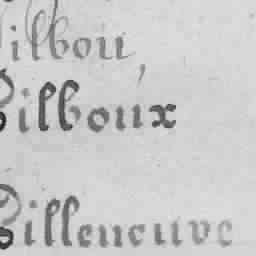 ilbou,
Gilboux
Gilleneuve